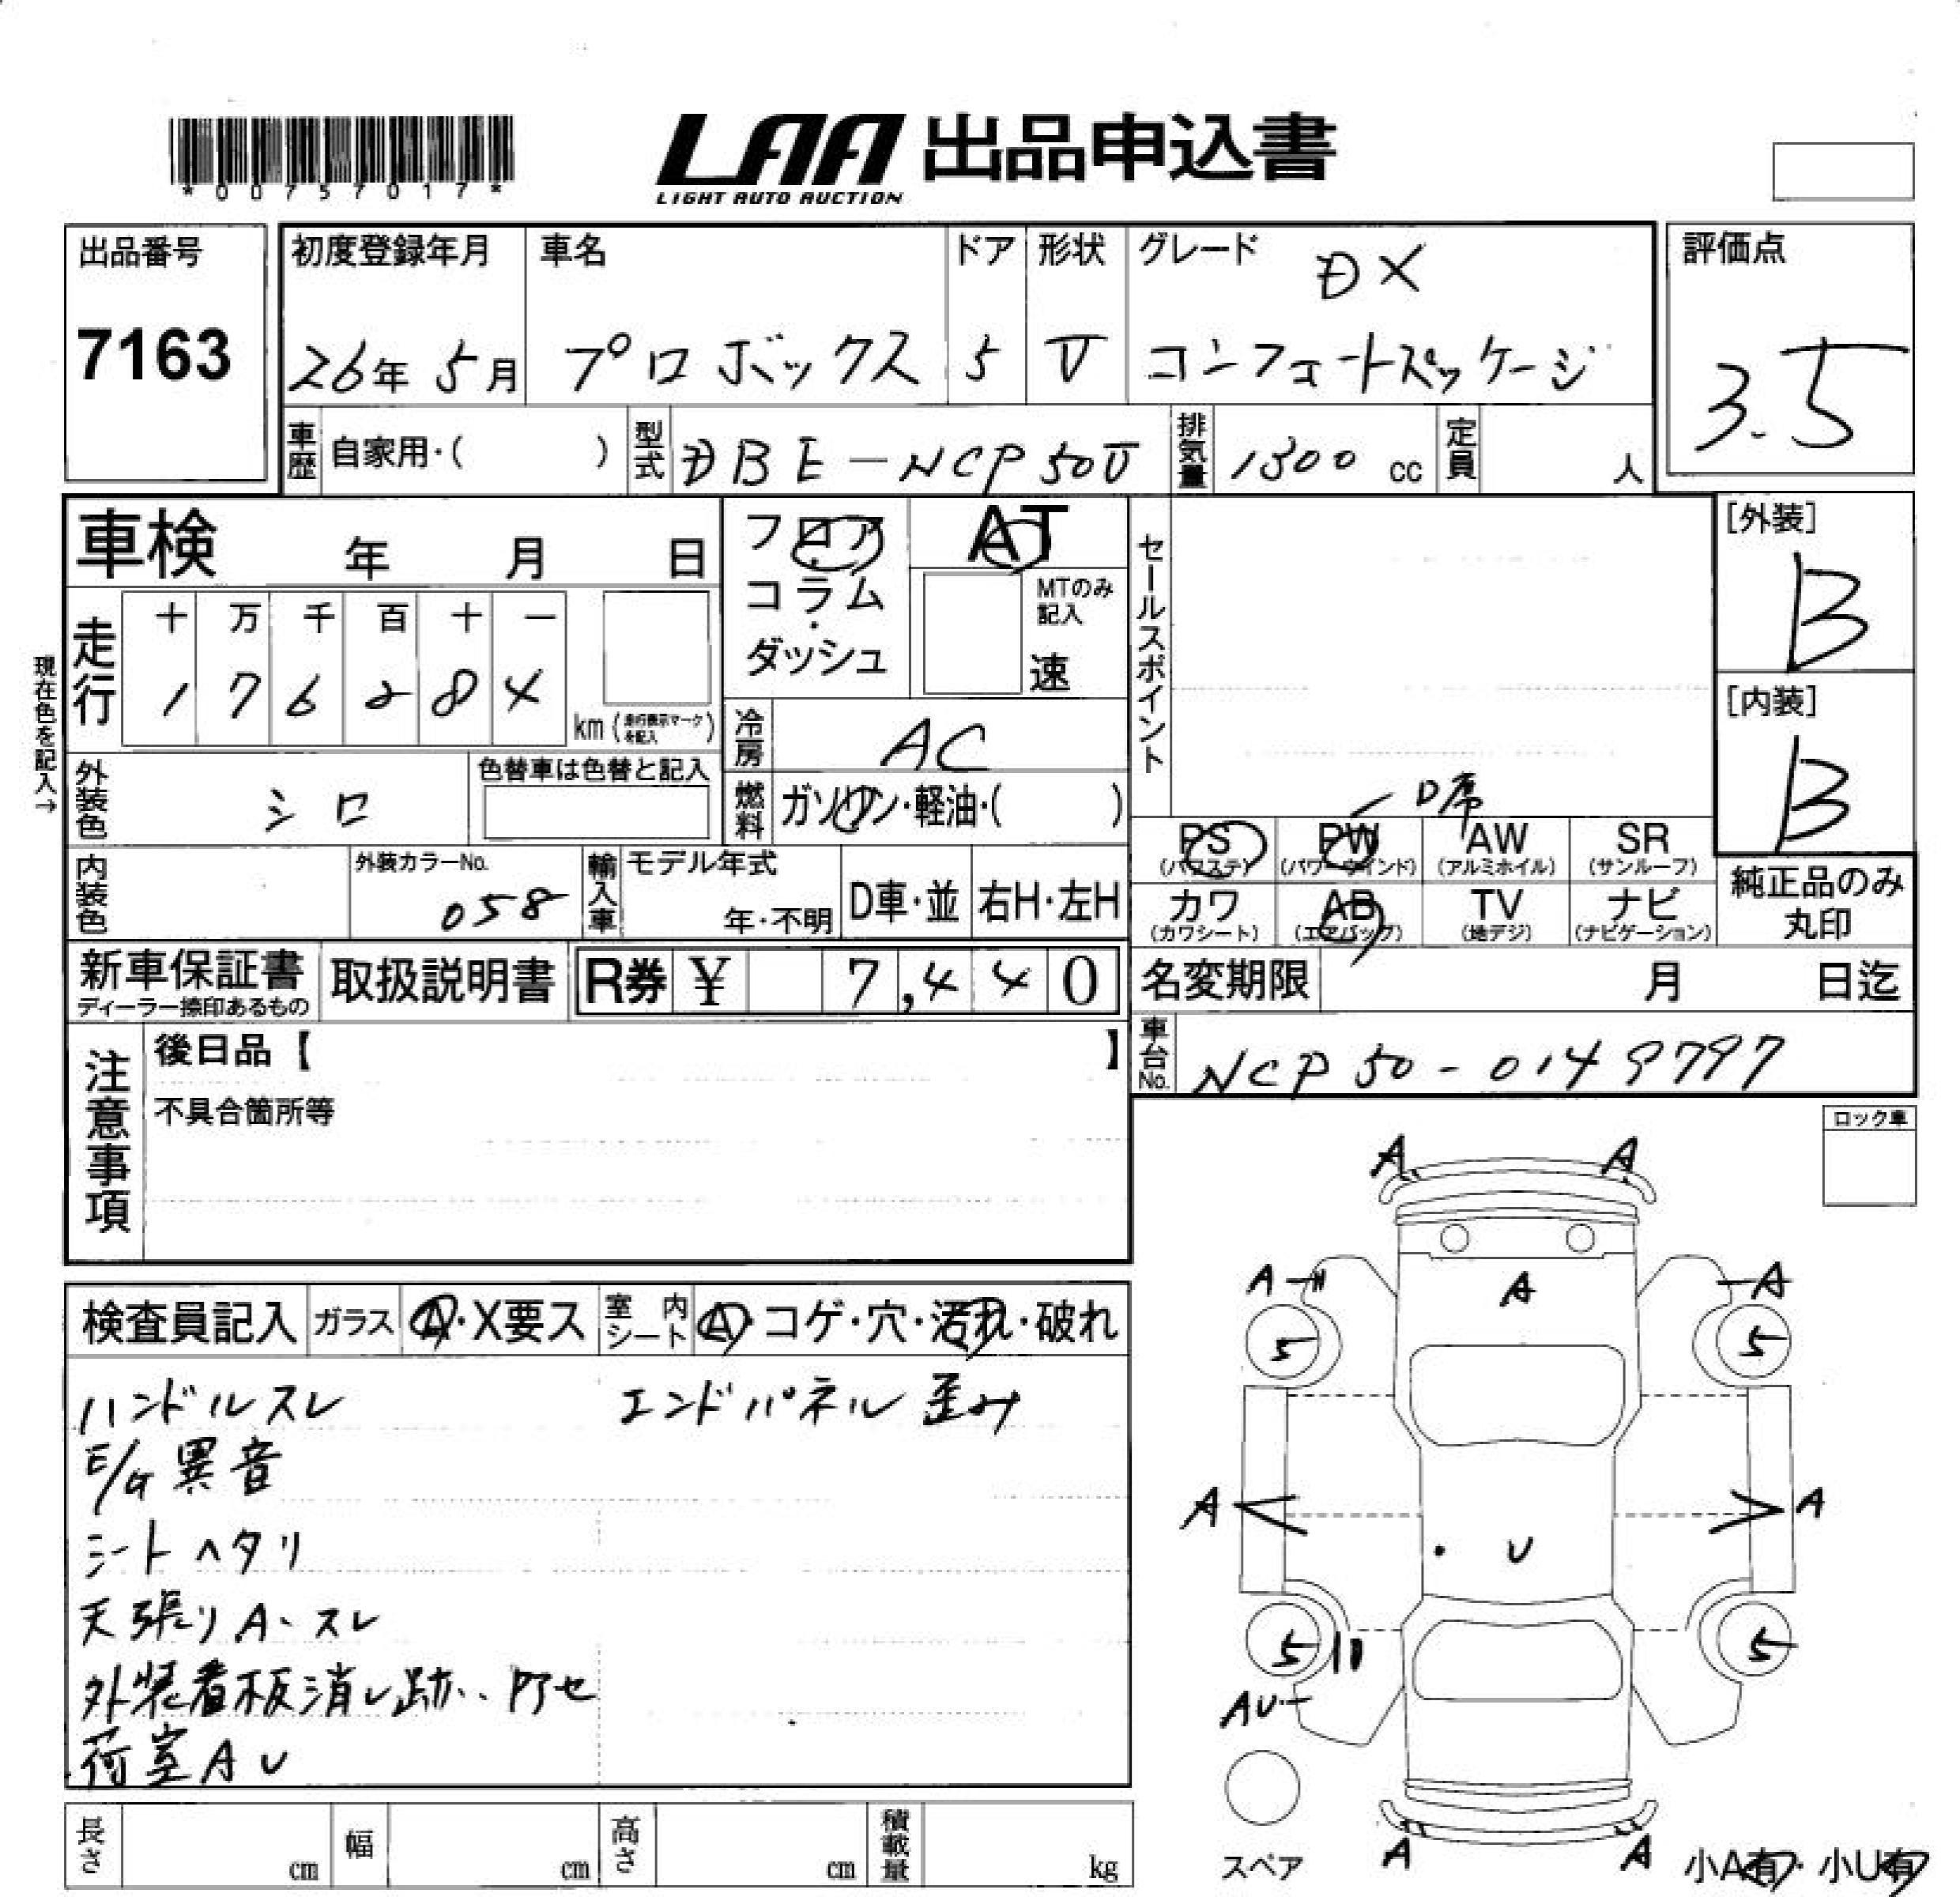 *00757017*
LAA 出品申込書
LIGHT AUTO AUCTION
出品番号
7163
初度登録年月
26年 5月
車名
プロボックス
ドア
5
形状
V
グレード
DX
コンフォートパッケージ
評価点
3.5
車歴 自家用・( )
型式 DBE-NCP50V
排気量 1300 cc
定員 人
車検 年 月 日
フロア・コラム・ダッシュ
AT
MTのみ記入
速
セールスポイント
[外装]
B
[内装]
B
現在色を記入→
走行
十 万 千 百 十 一
1 7 6 2 8 4
km (走行表示マークを記入)
冷房 AC
外装色 シロ
色替車は色替と記入
燃料 ガソリン・軽油・( )
D席
PS (パワステ)
PW (パワーウインド)
AW (アルミホイル)
SR (サンルーフ)
カワ (カワシート)
AB (エアバッグ)
TV (地デジ)
ナビ (ナビゲーション)
純正品のみ丸印
内装色
外装カラーNo.
058
輸入車
モデル年式
年・不明
D車・並
右H・左H
新車保証書
ディーラー捺印あるもの
取扱説明書
R券 ¥ 7,440
名変期限 月 日迄
車台No. NCP50-0149797
注意事項
後日品【 】
不具合箇所等
ロック車
検査員記入
ガラス A・X要ス
室内シート A・コゲ・穴・汚れ・破れ
ハンドルスレ
エンドパネル歪み
E/G異音
シートヘタリ
天張りA、スレ
外装看板消し跡、アセ
荷室AU
A A
A A A
5 5
A A
U
5 5
AU
スペア
A A
小A有・小U有
長さ cm
幅 cm
高さ cm
積載量 kg